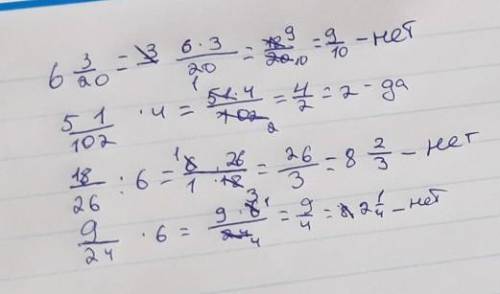 6 3/20 = 3 6·3/20 = 18 9/20 10 = 9/10 - нет
51/102 · 4 = 1 51·4/102 2 = 4/2 = 2 - да
18/26 : 6 = 1 6·26/1·18 3 = 26/3 = 8 2/3 - нет
9/24 · 6 = 9·6 1/24 4 = 9/4 = 2 1/4 - нет